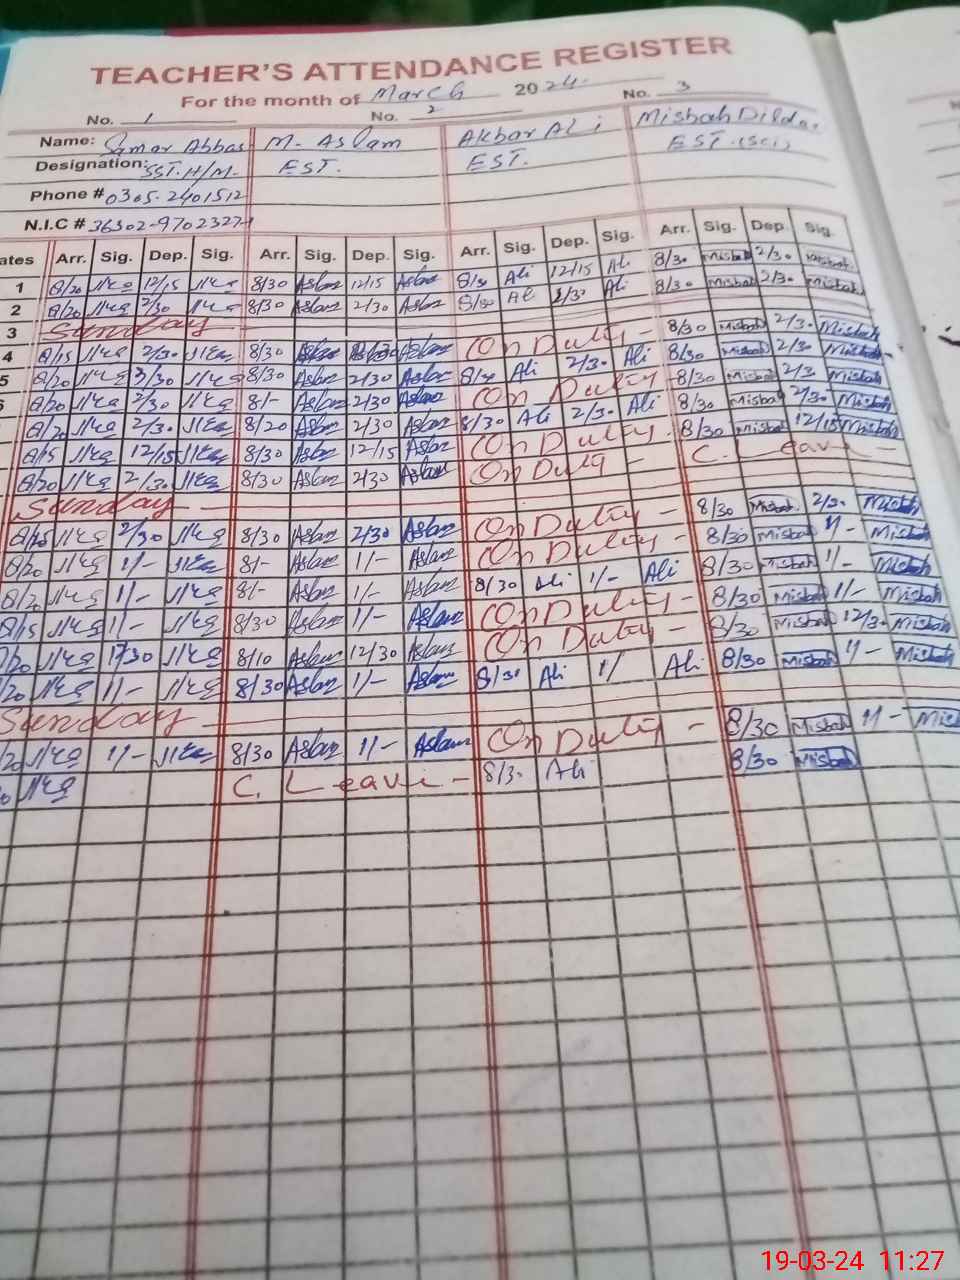 TEACHER'S ATTENDANCE REGISTER
For the month of March 2024.
No. 1 No. 2 No. 3
Name: Samar Abbas M. Aslam Akbar Ali Misbah Dildar
Designation: SST. H/M. EST. EST. EST. (Sci)
Phone # 0305-2401512
N.I.C # 36302-9702327-1
ates Arr. Sig. Dep. Sig. Arr. Sig. Dep. Sig. Arr. Sig. Dep. Sig. Arr. Sig. Dep. Sig.
1 8/20 12/15 8/30 Aslam 12/15 Aslam 8/30 Ali 12/15 Ali 8/30 Misbah 2/30 Misbah
2 8/20 2/30 8/30 Aslam 2/30 Aslam 8/30 Ali 2/30 Ali 8/30 Misbah 2/30 Misbah
3 Sunday
4 8/15 2/30 8/30 Aslam 2/30 Aslam On Duty - 8/30 Misbah 2/30 Misbah
5 8/20 2/30 8/30 Aslam 2/30 Aslam 8/30 Ali 2/30 Ali 8/30 Misbah 2/30 Misbah
8/20 2/30 8/- Aslam 2/30 Aslam On Duty 8/30 Misbah 2/3 Misbah
8/20 2/30 8/20 Aslam 2/30 Aslam 8/30 Ali 2/30 Ali 8/30 Misbah 2/30 Misbah
8/15 12/15 8/30 Aslam 12/15 Aslam On Duty - 8/30 Misbah 12/15 Misbah
8/20 2/30 8/30 Aslam 2/30 Aslam On Duty - C. Leave -
Sunday -
2/30 8/30 Aslam 2/30 Aslam On Duty - 8/30 Misbah 2/30 Misbah
8/20 1/- 8/- Aslam 1/- Aslam On Duty - 8/30 Misbah 1/- Misbah
8/20 1/- 8/- Aslam 1/- Aslam 8/30 Ali 1/- Ali 8/30 Misbah 1/- Misbah
8/15 1/- 8/30 Aslam 1/- Aslam On Duty - 8/30 Misbah 1/- Misbah
/20 8/10 Aslam 12/30 Aslam On Duty - 8/30 Misbah 12/30 Misbah
/20 1/- 8/30 Aslam 1/- Aslam 8/30 Ali 1/ Ali 8/30 Misbah 1/- Misbah
Sunday -
/20 1/- 8/30 Aslam 1/- Aslam On Duty - 8/30 Misbah 1/- Mis
C. Leave - 8/30 Ali 8/30 Misbah
19-03-24 11:27